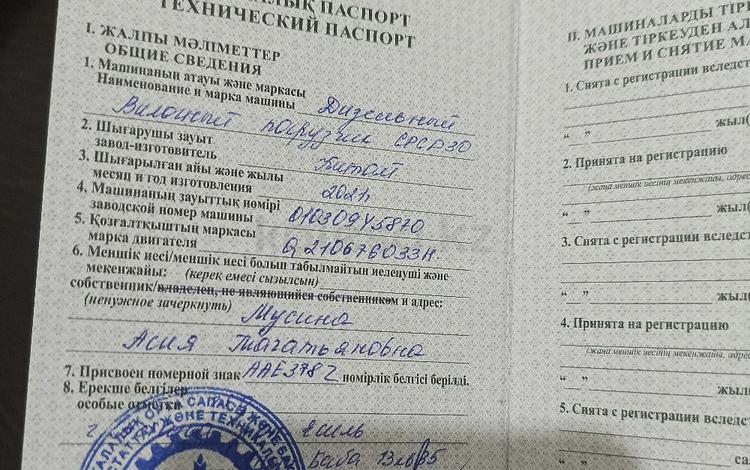 ЛЫҚ ПАСПОРТ
ТЕХНИЧЕСКИЙ ПАСПОРТ
I. ЖАЛПЫ МӘЛІМЕТТЕР
ОБЩИЕ СВЕДЕНИЯ
1. Машинаның атауы және маркасы
Наименование и марка машины Дизельный
Вилочный погрузчик CPCD30
2. Шығарушы зауыт
завод-изготовитель Китай
3. Шығарылған айы және жылы
месяц и год изготовления 2021
4. Машинаның зауыттық нөмірі
заводской номер машины 010309Y5870
5. Қозғалтқыштың маркасы
марка двигателя Q210676033H
6. Меншік иесі/меншік иесі болып табылмайтын иеленуші және
мекенжайы: (керек емесі сызылсын)
собственник/владелец, не являющийся собственником и адрес:
(ненужное зачеркнуть) Мусина
Асия Тагатьяновна
7. Присвоен номерной знак ААЕ378Z нөмірлік белгісі берілді.
8. Ерекше белгілер
особые отметки
г Есиль
II. МАШИНАЛАРДЫ ТІР
ЖӘНЕ ТІРКЕУДЕН АЛ
ПРИЕМ И СНЯТИЕ МА
1. Снята с регистрации вследст
“ ” жыл(
2. Принята на регистрацию
(жаңа меншік иесінің мекенжайы, адрес
“ ” жыл(
3. Снята с регистрации вследст
“ ” жыл(
4. Принята на регистрацию
(жаңа меншік иесінің мекенжайы,
“ ” жыл(
5. Снята с регистрации вследст